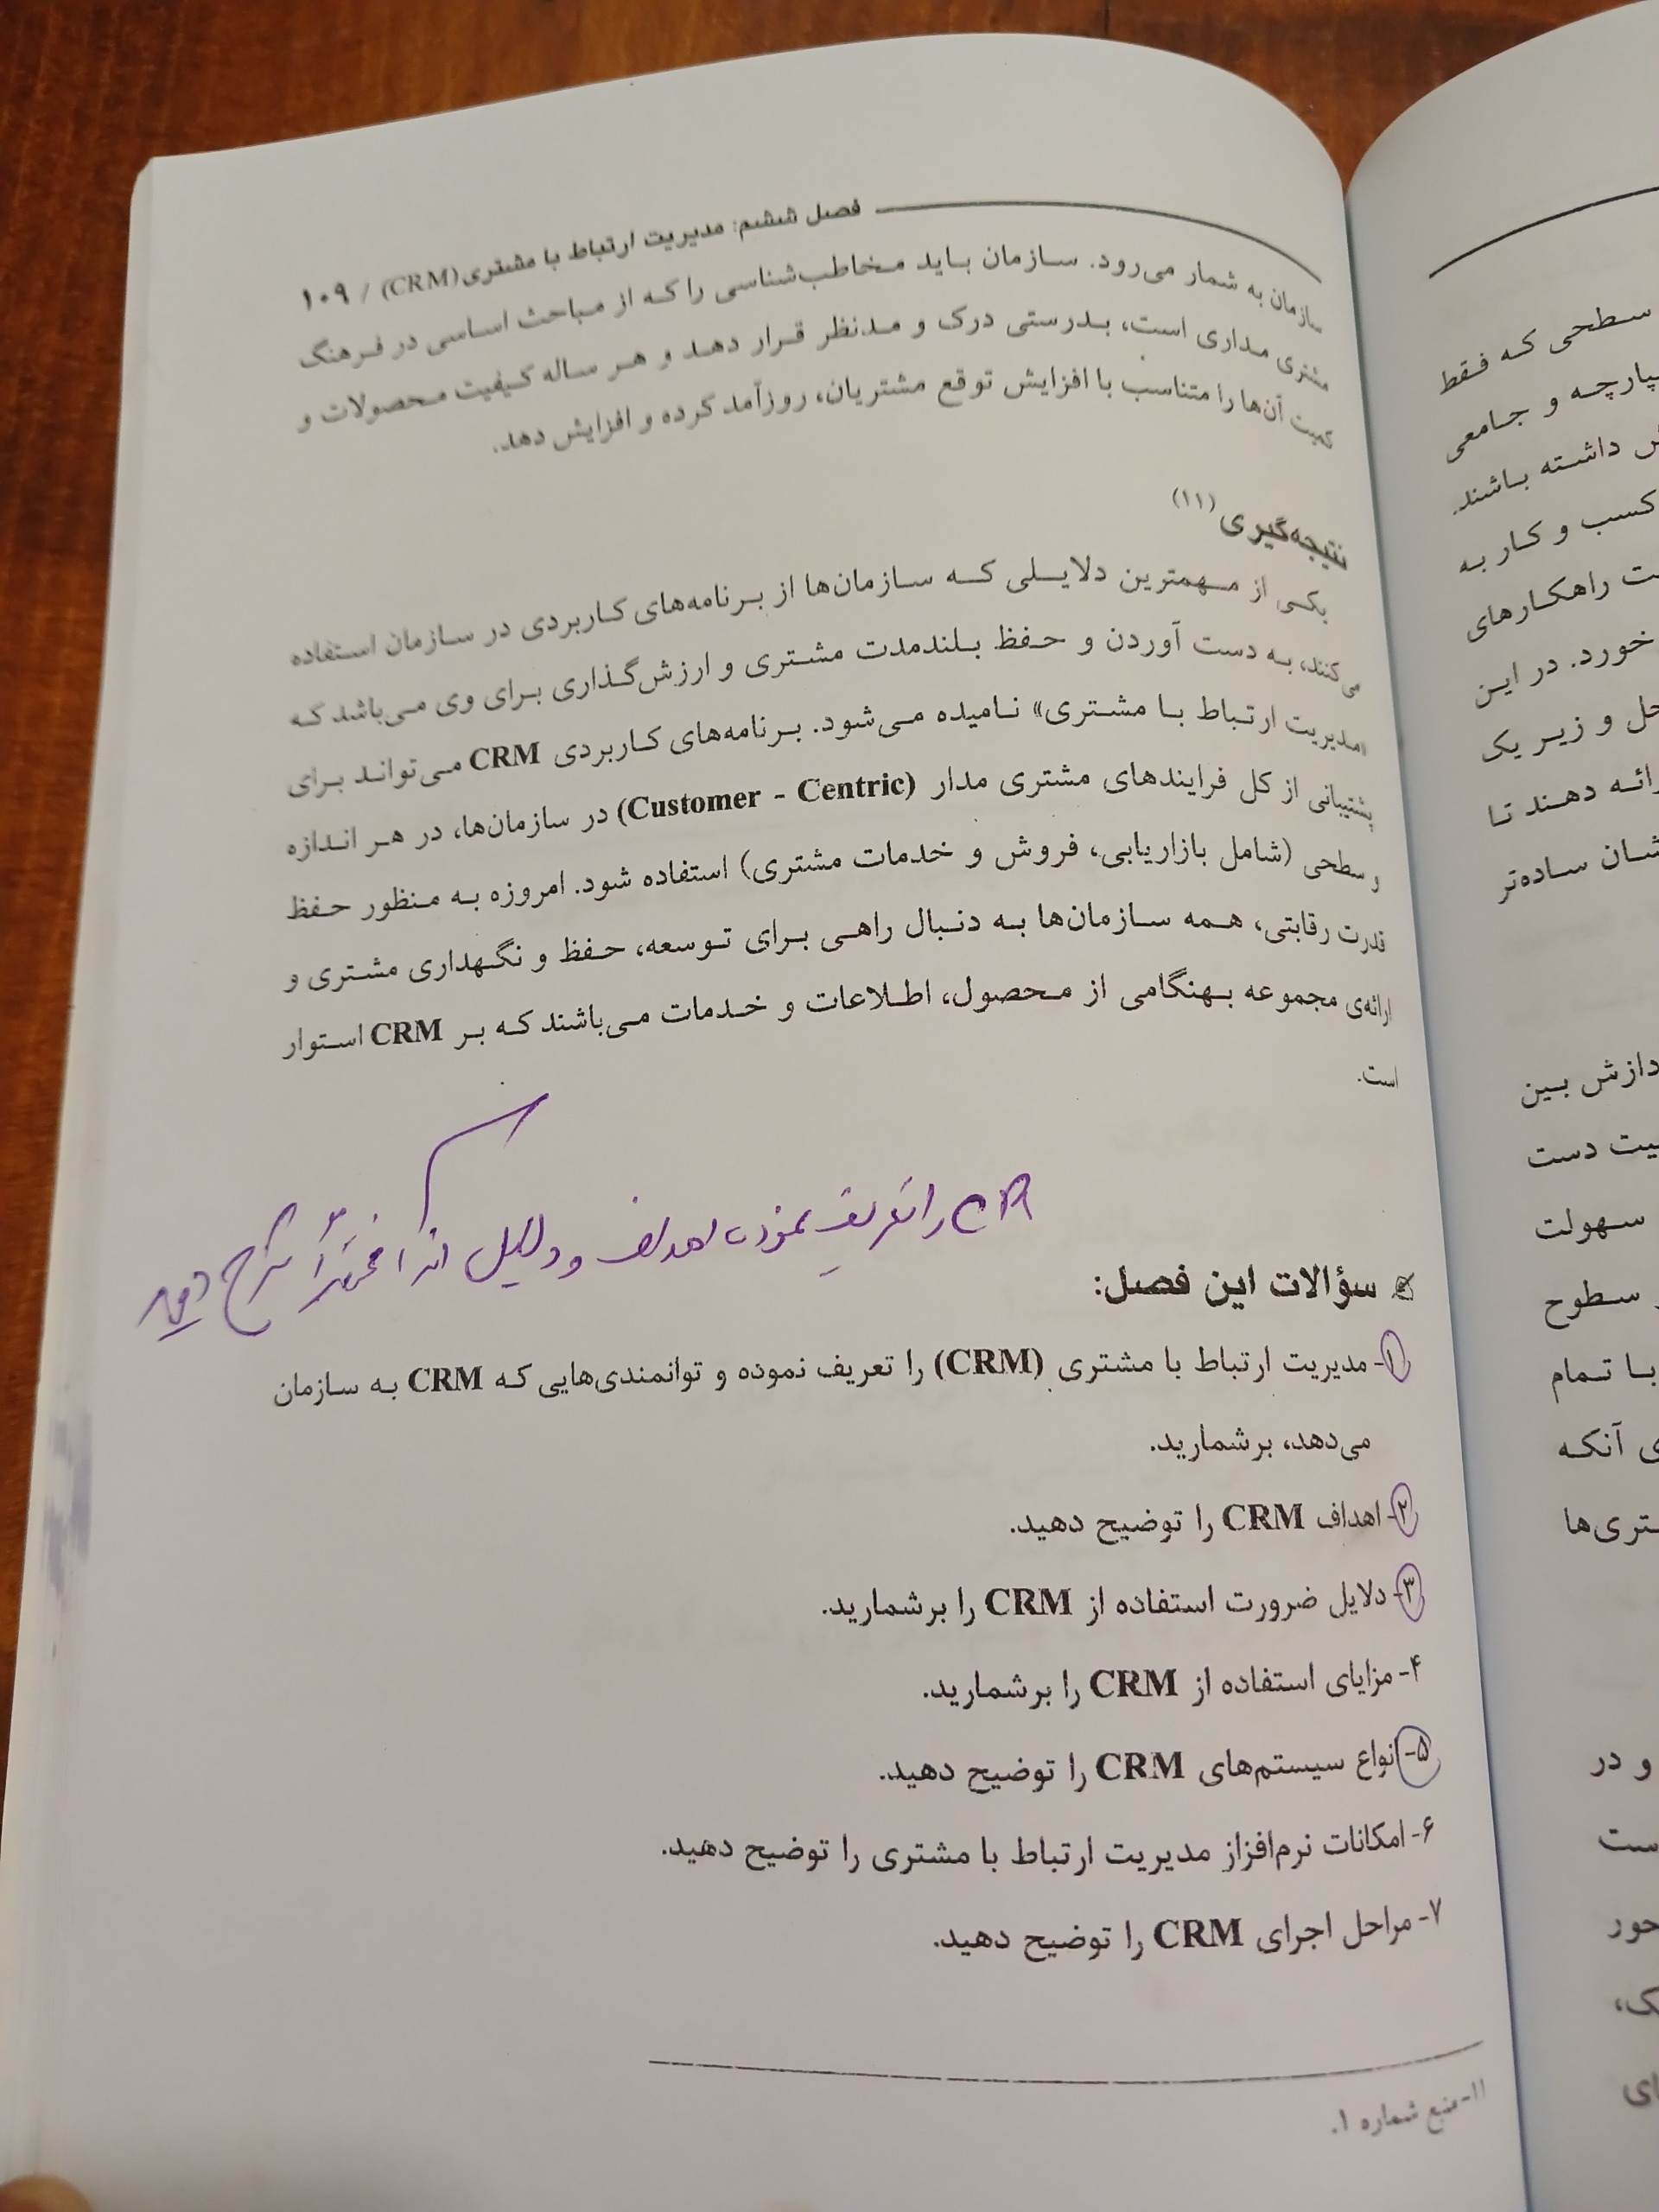 فصل ششم: مدیریت ارتباط با مشتری(CRM) / ۱۰۹
سازمان به شمار می‌رود. سازمان باید مخاطب‌شناسی را که از مباحث اساسی در فرهنگ
مشتری مداری است، بدرستی درک و مدنظر قرار دهد و هر ساله کیفیت محصولات و
کمیت آن‌ها را متناسب با افزایش توقع مشتریان، روزآمد کرده و افزایش دهد.
نتیجه‌گیری (۱۱)
یکی از مهمترین دلایلی که سازمان‌ها از برنامه‌های کاربردی در سازمان استفاده
می‌کنند، به دست آوردن و حفظ بلندمدت مشتری و ارزش‌گذاری برای وی می‌باشد که
«مدیریت ارتباط با مشتری» نامیده می‌شود. برنامه‌های کاربردی CRM می‌تواند برای
پشتیبانی از کل فرایندهای مشتری مدار (Customer - Centric) در سازمان‌ها، در هر اندازه
و سطحی (شامل بازاریابی، فروش و خدمات مشتری) استفاده شود. امروزه به منظور حفظ
قدرت رقابتی، همه سازمان‌ها به دنبال راهی برای توسعه، حفظ و نگهداری مشتری و
ارائه‌ی مجموعه بهنگامی از محصول، اطلاعات و خدمات می‌باشند که بر CRM استوار
است.
را تعریف نموده اهداف و دلایل آنرا مختصراً شرح دهید
سؤالات این فصل:
۱- مدیریت ارتباط با مشتری (CRM) را تعریف نموده و توانمندی‌هایی که CRM به سازمان
می‌دهد، برشمارید.
۲- اهداف CRM را توضیح دهید.
۳- دلایل ضرورت استفاده از CRM را برشمارید.
۴- مزایای استفاده از CRM را برشمارید.
۵- انواع سیستم‌های CRM را توضیح دهید.
۶- امکانات نرم‌افزاز مدیریت ارتباط با مشتری را توضیح دهید.
۷- مراحل اجرای CRM را توضیح دهید.
۱۱- منبع شماره ۱.
سطحی که فقط
و جامعی
داشته باشند
کسب و کار به
راهکارهای
خورد. در این
و زیر یک
دهند تا
ساده‌تر
بین
دست
سهولت
سطوح
با تمام
آنکه
و در